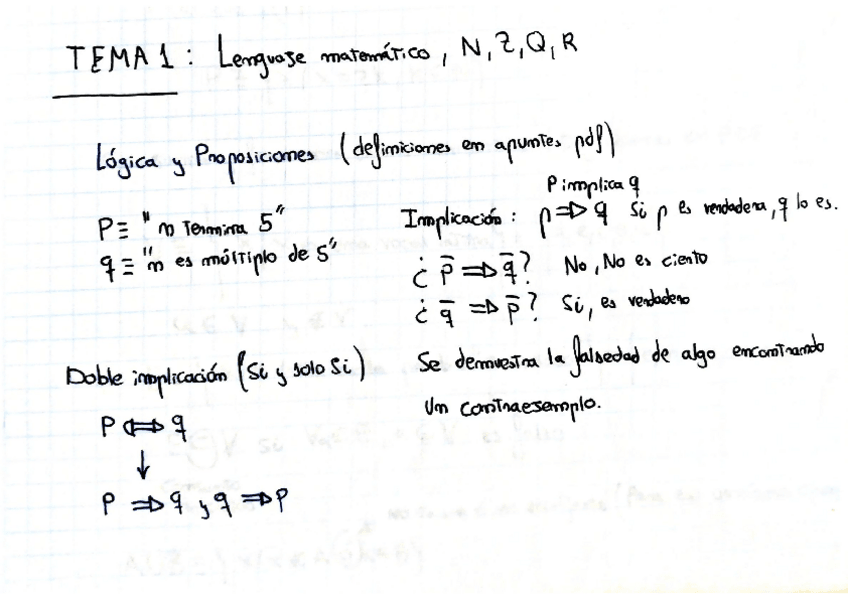 TEMA 1: Lenguaje matemático, N, Z, Q, R
Lógica y Proposiciones (definiciones en apuntes pdf)
P ≡ "n Termina 5"
q ≡ "n es múltiplo de 5"
P implica q
Implicación: p ⇒ q Si p es verdadera, q lo es.
¿ p̅ ⇒ q̅? No, No es cierto
¿ q̅ ⇒ p̅? Si, es verdadero
Se demuestra la falsedad de algo encontrando
un contraejemplo.
Doble implicación (Si y solo Si)
P ⇔ q
↓
P ⇒ q y q ⇒ P